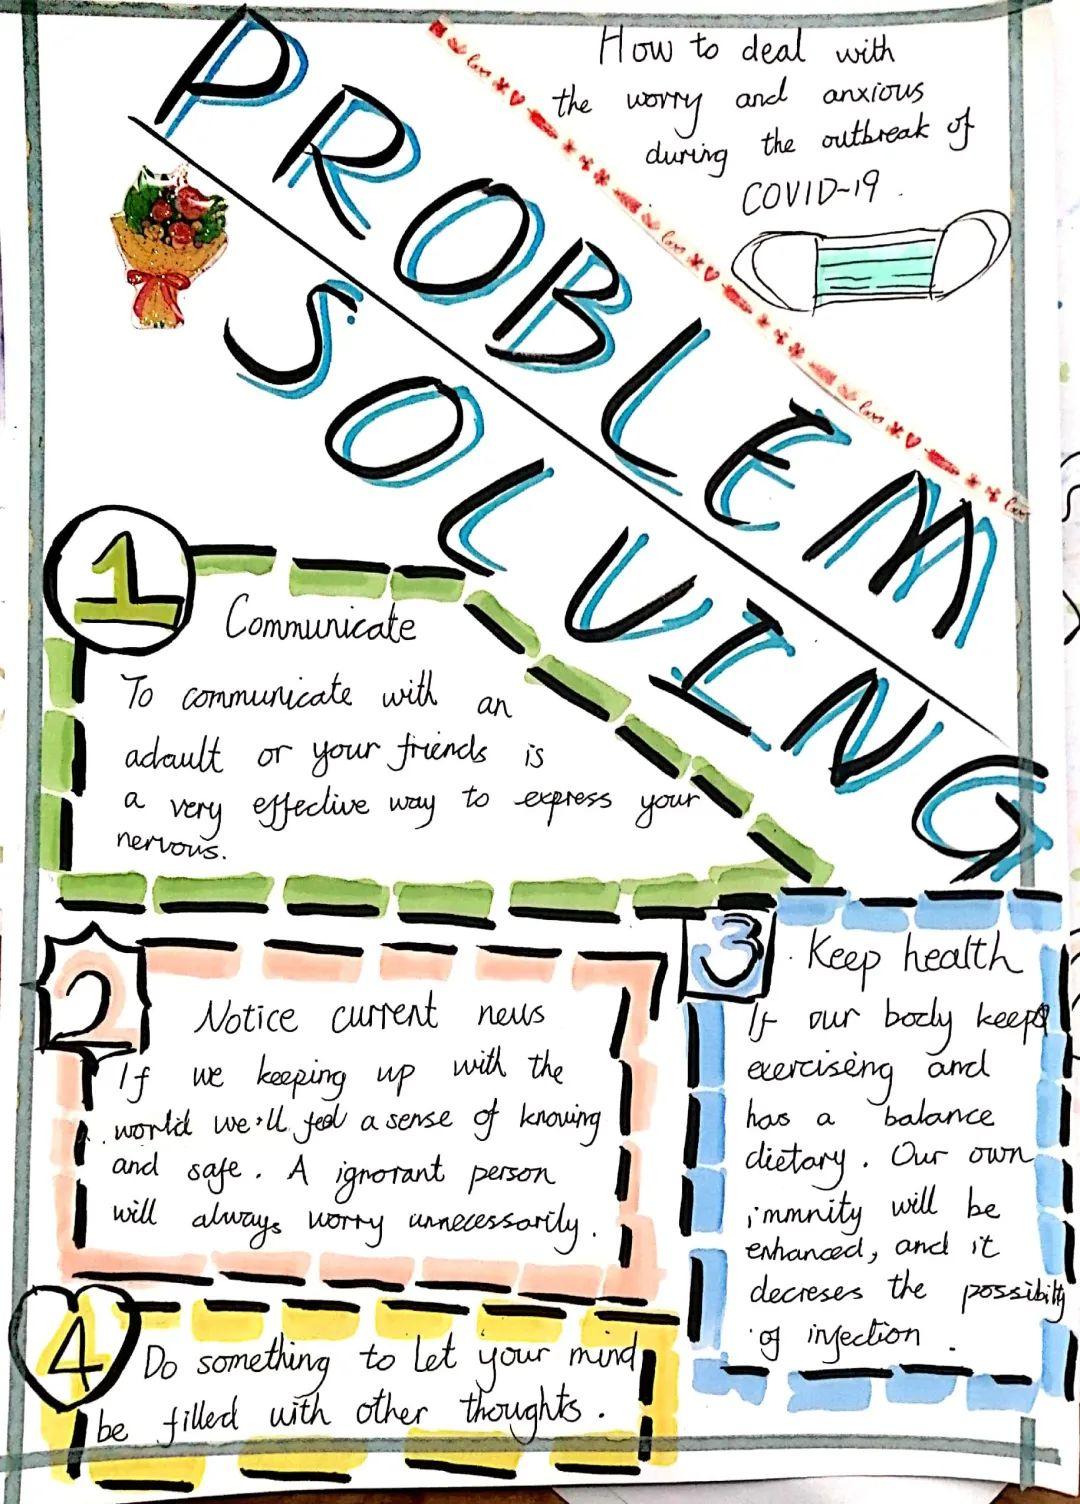 PROBLEM
SOLVING
How to deal with
the worry and anxious
during the outbreak of
COVID-19.
1
Communicate
To communicate with an
adault or your friends is
a very effective way to express your
nervous.
2
Notice current news
If we keeping up with the
world we'll feel a sense of knowing
and safe. A ignorant person
will always worry unnecessarily.
3
Keep health
If our body keeps
exerciseing and
has a balance
dietary. Our own
immnity will be
enhanced, and it
decreses the possibility
of injection.
4
Do something to let your mind
be filled with other thoughts.
love
love
love
love